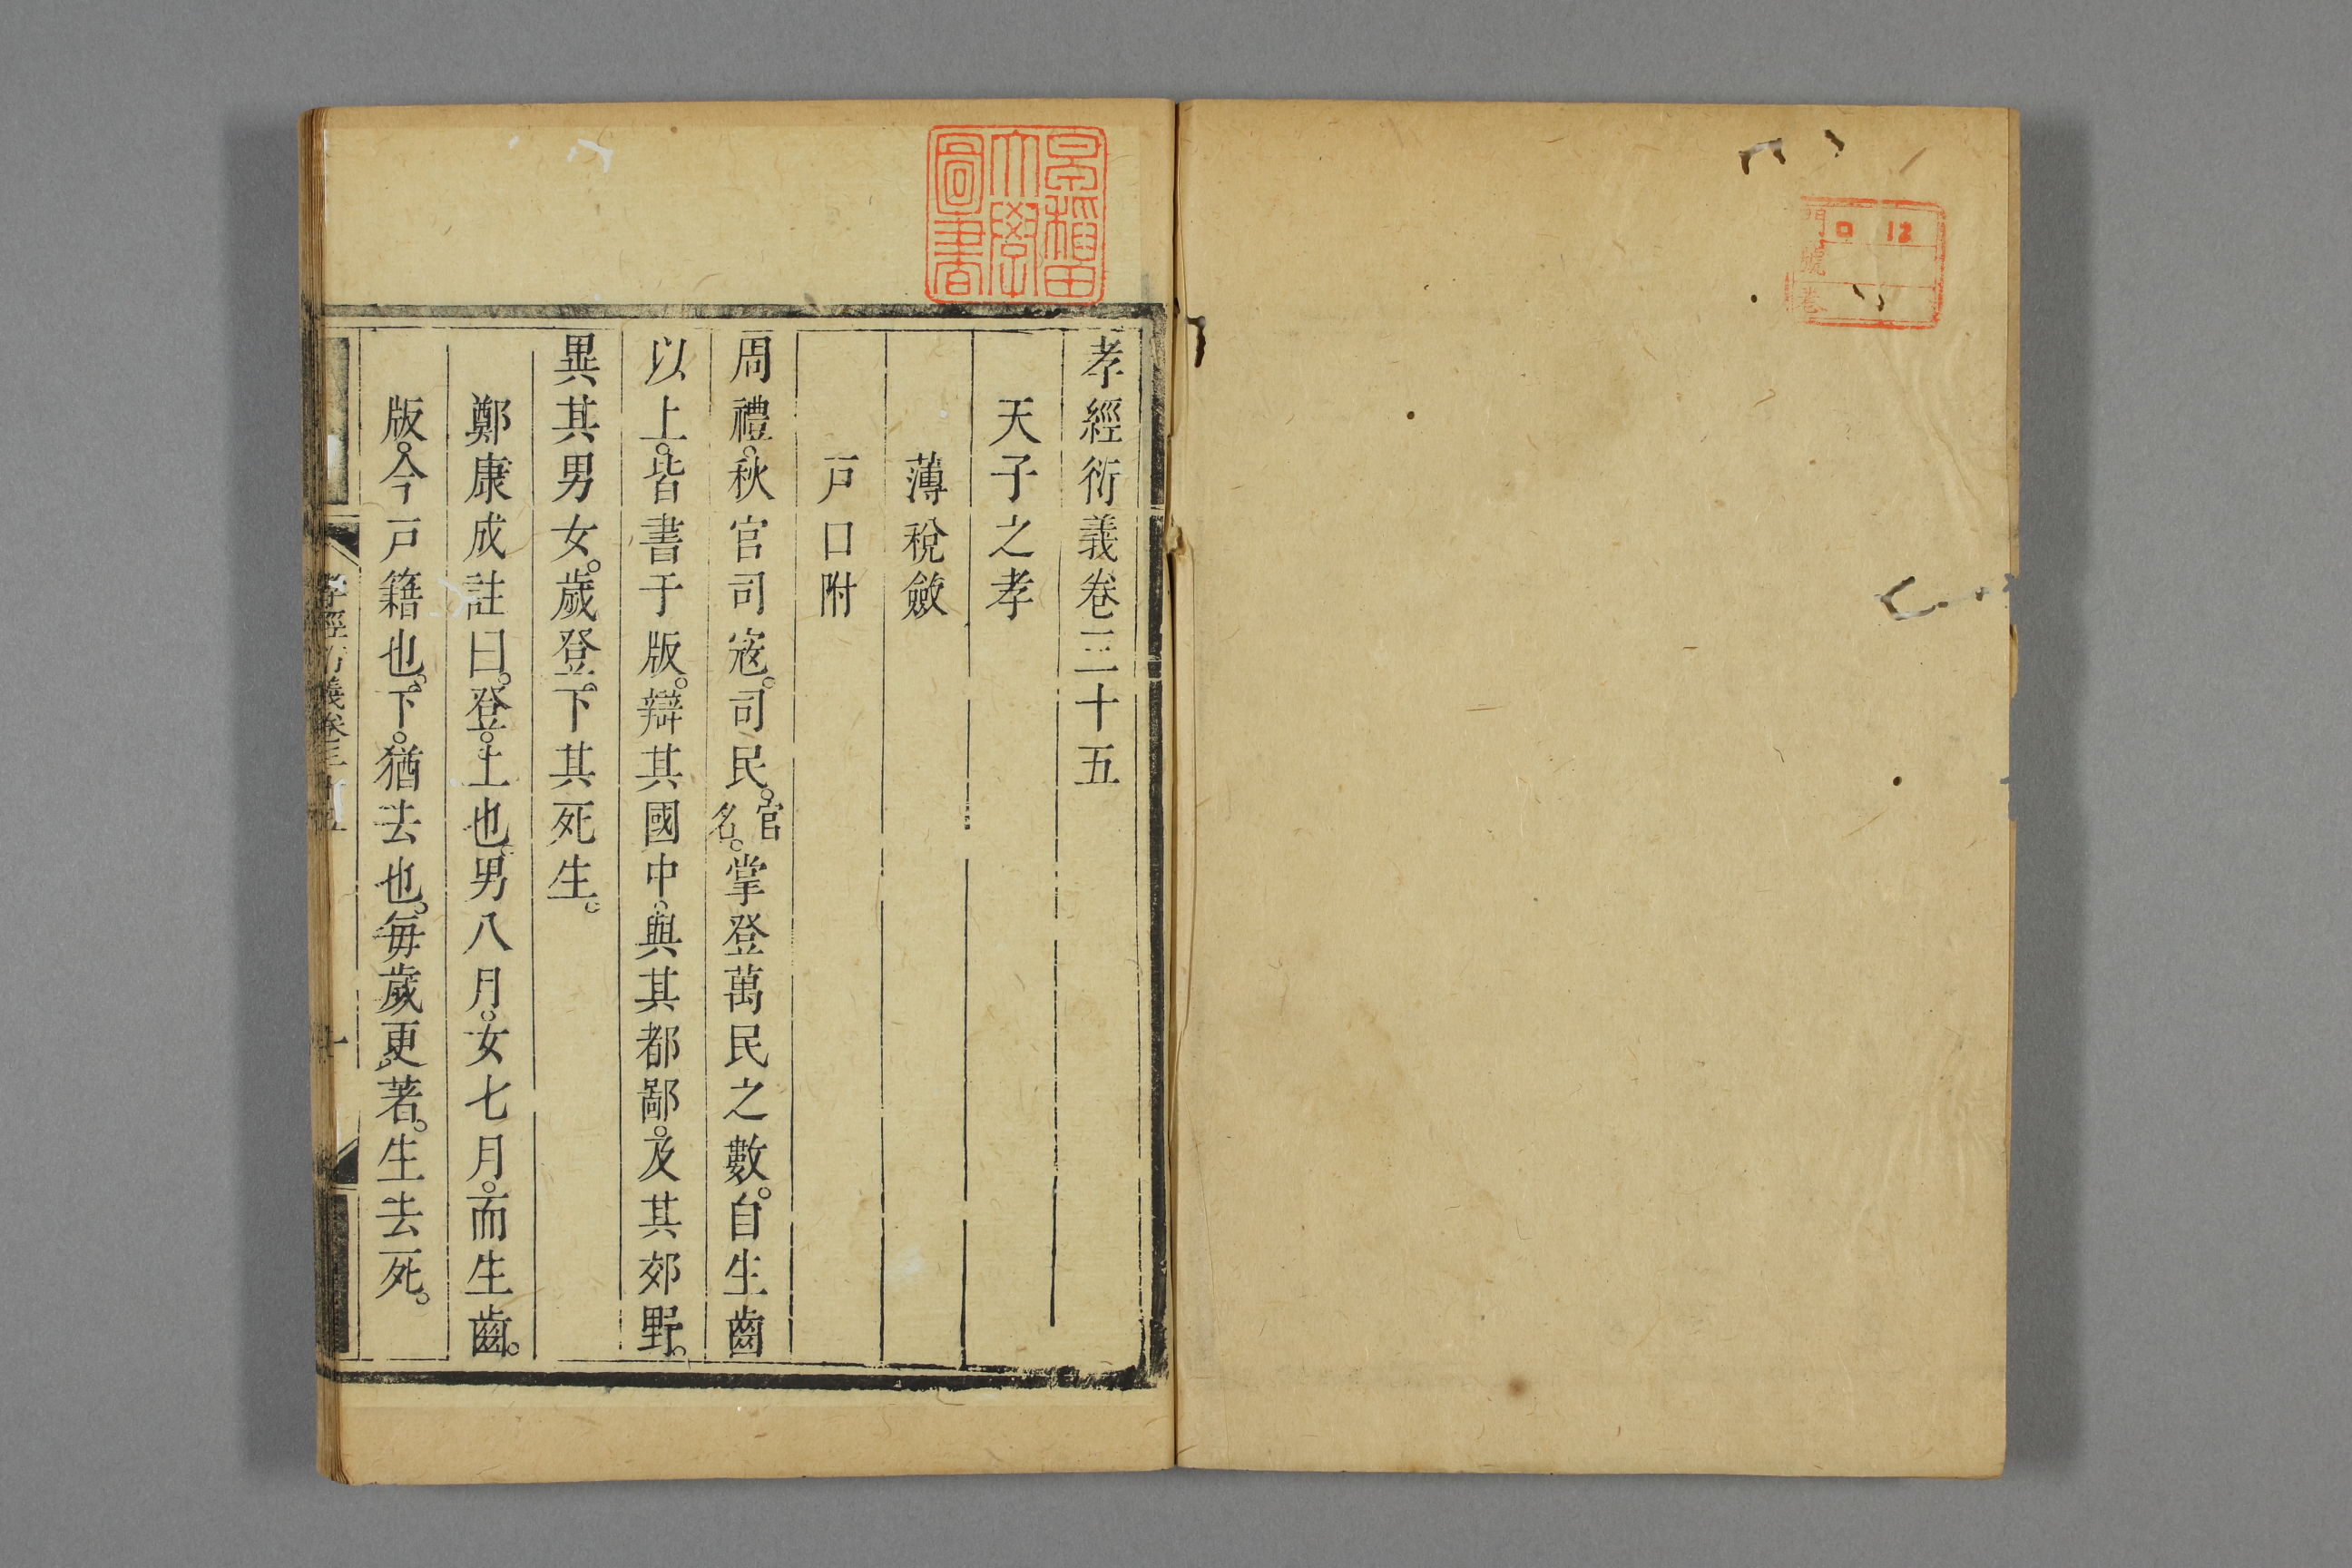 門 口 12
號
卷
早稲田
大學
圖書
孝經衍義卷三十五
天子之孝
薄稅斂
戸口附
周禮。秋官司寇。司民。官名。掌登萬民之數。自生齒
以上。皆書于版。辯其國中。與其都鄙。及其郊野。
異其男女。歲登。下其死生。
鄭康成註曰。登。上也。男八月。女七月。而生齒。
版。今戸籍也。下。猶去也。每歲更著。生去死。
孝經衍義卷三十五 一